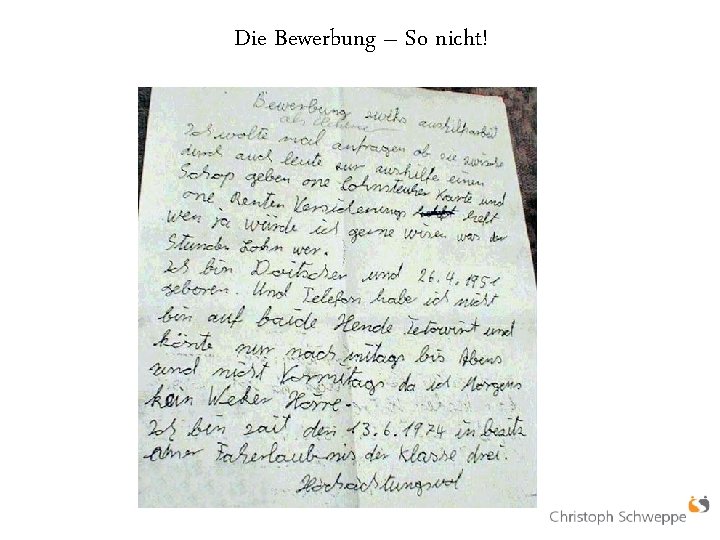 Die Bewerbung – So nicht!
Bewerbung zweks aushilfsarbeit
als
Ich wolte mal anfragen ob sie zwischen
durch auch leute zur aushilfe einen
Schop geben one Lohnsteuher Karte und
one Renten Versicherungs heft
wen ja würde ich gerne wisen was der
Stunden Lohn wer.
Ich bin Doitscher und 26.4.1951
geboren. Und Telefon habe ich nicht
bin auf baide Hende Tetowirt und
könte nur nach mitags bis Abens
und nicht Vormitags da ich Morgens
kein Weker Hörre.
Ich bin sait den 13.6.1974 in besitz
ainer Faherlaubnis der Klasse drei.
Hochachtungsvol
Christoph Schweppe